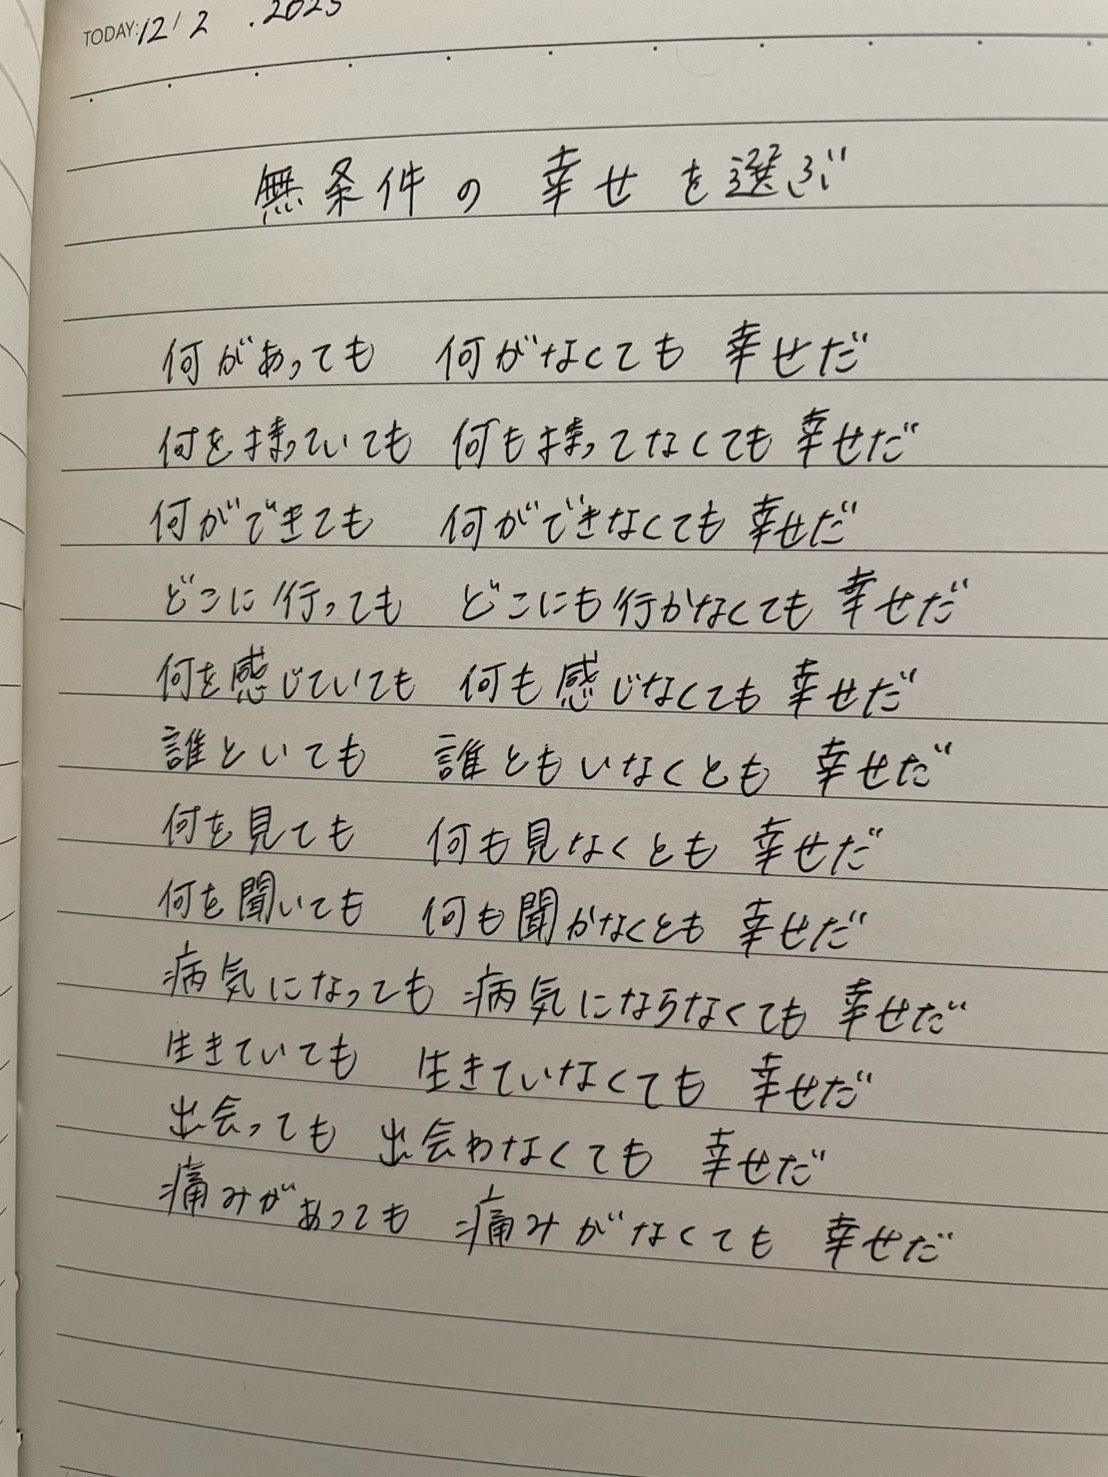 TODAY: 12/2 .2025
無条件の 幸せを選ぶ
何があっても 何がなくても 幸せだ
何を持っていても 何も持ってなくても 幸せだ
何ができても 何ができなくても 幸せだ
どこに行っても どこにも行かなくても 幸せだ
何を感じていても 何も感じなくても 幸せだ
誰といても 誰ともいなくとも 幸せだ
何を見ても 何も見なくとも 幸せだ
何を聞いても 何も聞かなくとも 幸せだ
病気になっても 病気にならなくても 幸せだ
生きていても 生きていなくても 幸せだ
出会っても 出会わなくても 幸せだ
痛みがあっても 痛みがなくても 幸せだ